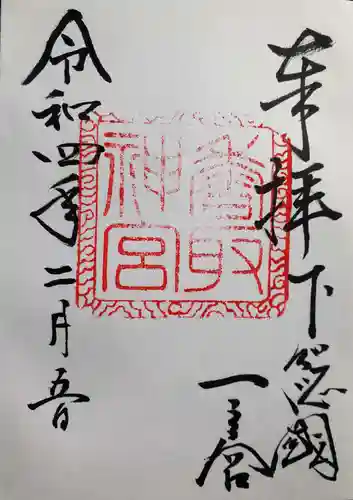 奉拝
下総國
一之宮
香取
神宮
令和四年二月五日